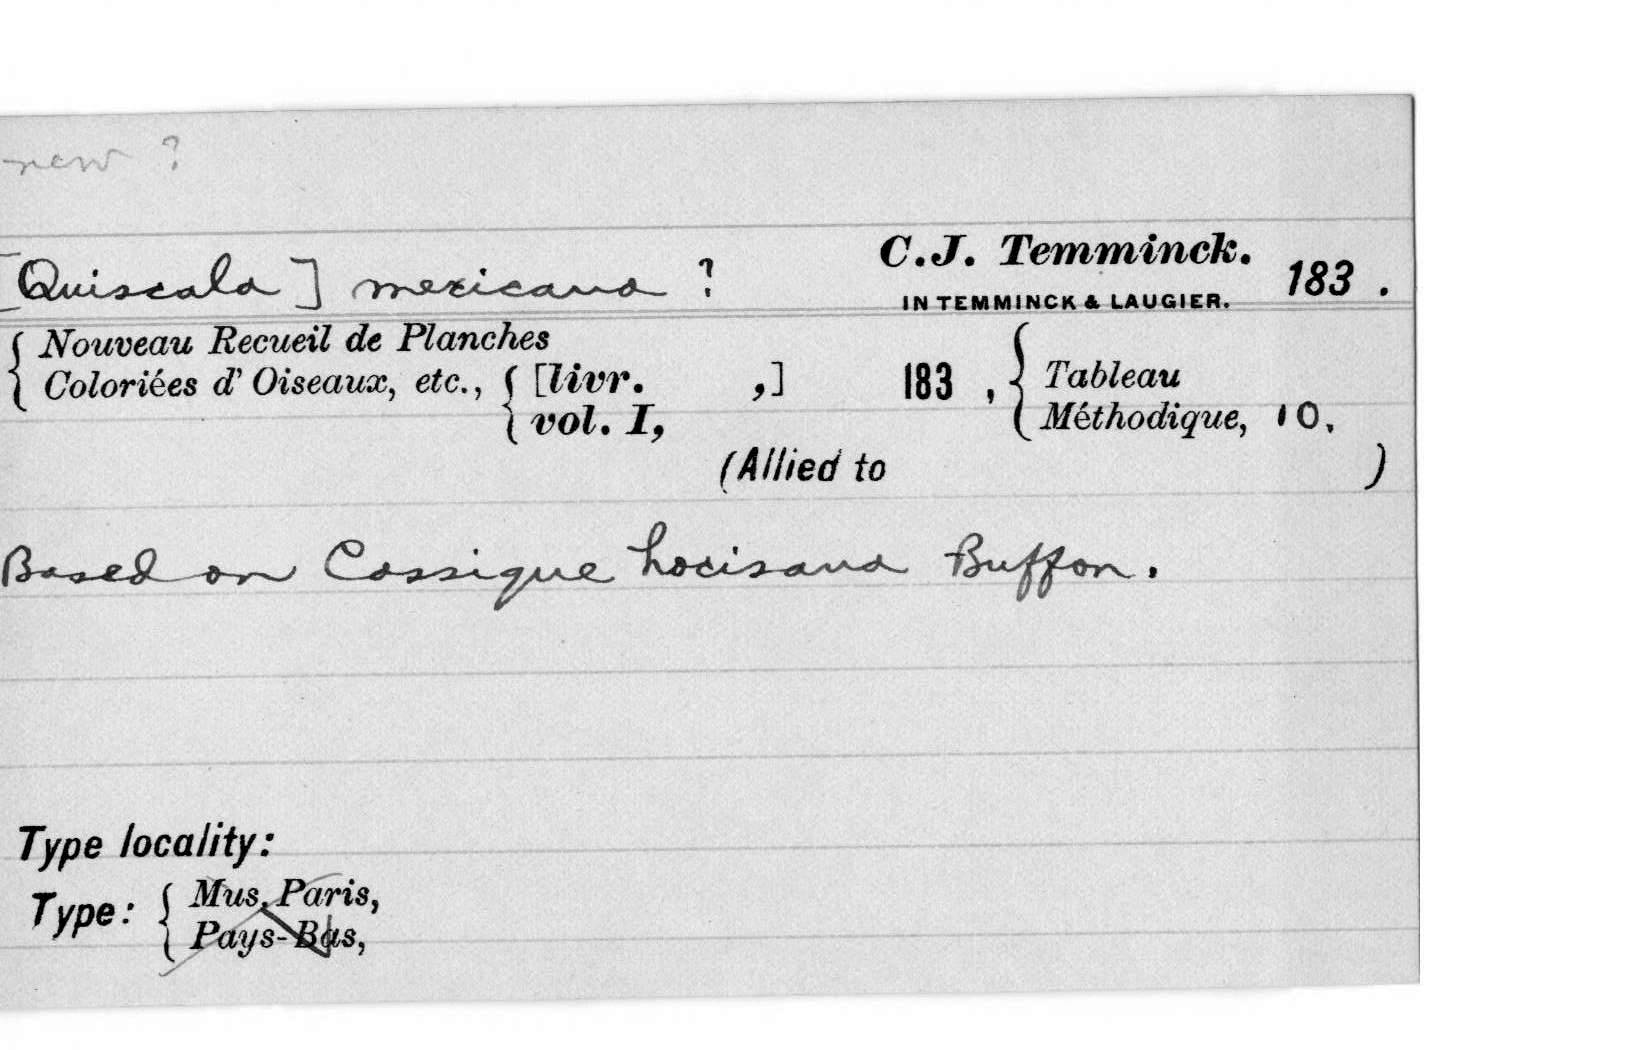 new ?
[Quiscala] mexicana ? C.J. Temminck. 183 .
IN TEMMINCK & LAUGIER.
Nouveau Recueil de Planches
Coloriées d' Oiseaux, etc., [livr. ,] 183 , Tableau
vol. I, Méthodique, 10.
(Allied to )
Based on Cassique hocisana Buffon.
Type locality:
Type: Mus. Paris,
Pays-Bas,